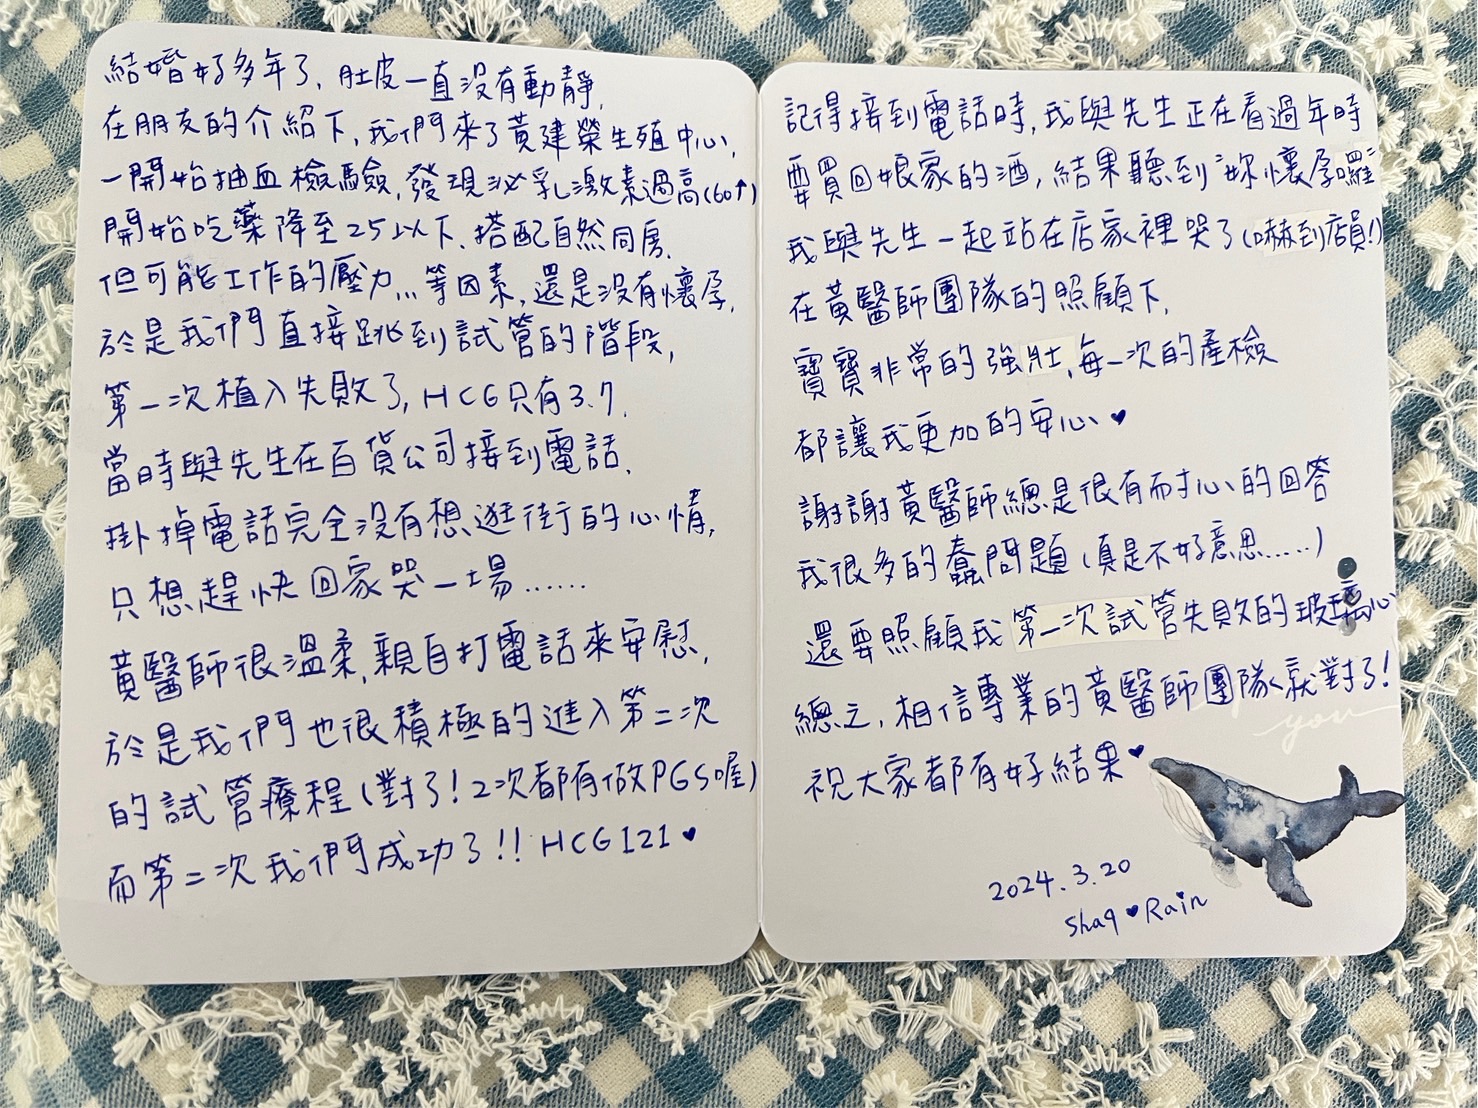 結婚好多年了, 肚皮一直沒有動靜,
在朋友的介紹下, 我們來了黃建榮生殖中心,
一開始抽血檢驗, 發現泌乳激素過高(60↑)
開始吃藥降至25以下、搭配自然同房,
但可能工作的壓力...等因素, 還是沒有懷孕,
於是我們直接跳到試管的階段,
第一次植入失敗了, HCG只有3.7,
當時與先生在百貨公司接到電話,
掛掉電話完全沒有想逛街的心情,
只想趕快回家哭一場......
黃醫師很溫柔, 親自打電話來安慰,
於是我們也很積極的進入第二次
的試管療程(對了! 2次都有做PGS喔)
而第二次我們成功了!! HCG 121♥
記得接到電話時, 我與先生正在看過年時
要買回娘家的酒, 結果聽到"妳懷孕囉"
我與先生一起站在店家裡哭了(嚇到店員!)
在黃醫師團隊的照顧下,
寶寶非常的強壯, 每一次的產檢
都讓我更加的安心♥
謝謝黃醫師總是很有耐心的回答
我很多的蠢問題(真是不好意思.....)
還要照顧我第一次試管失敗的玻璃心
總之, 相信專業的黃醫師團隊就對了!
you
祝大家都有好結果♥
2024.3.20
Shaq♥Rain